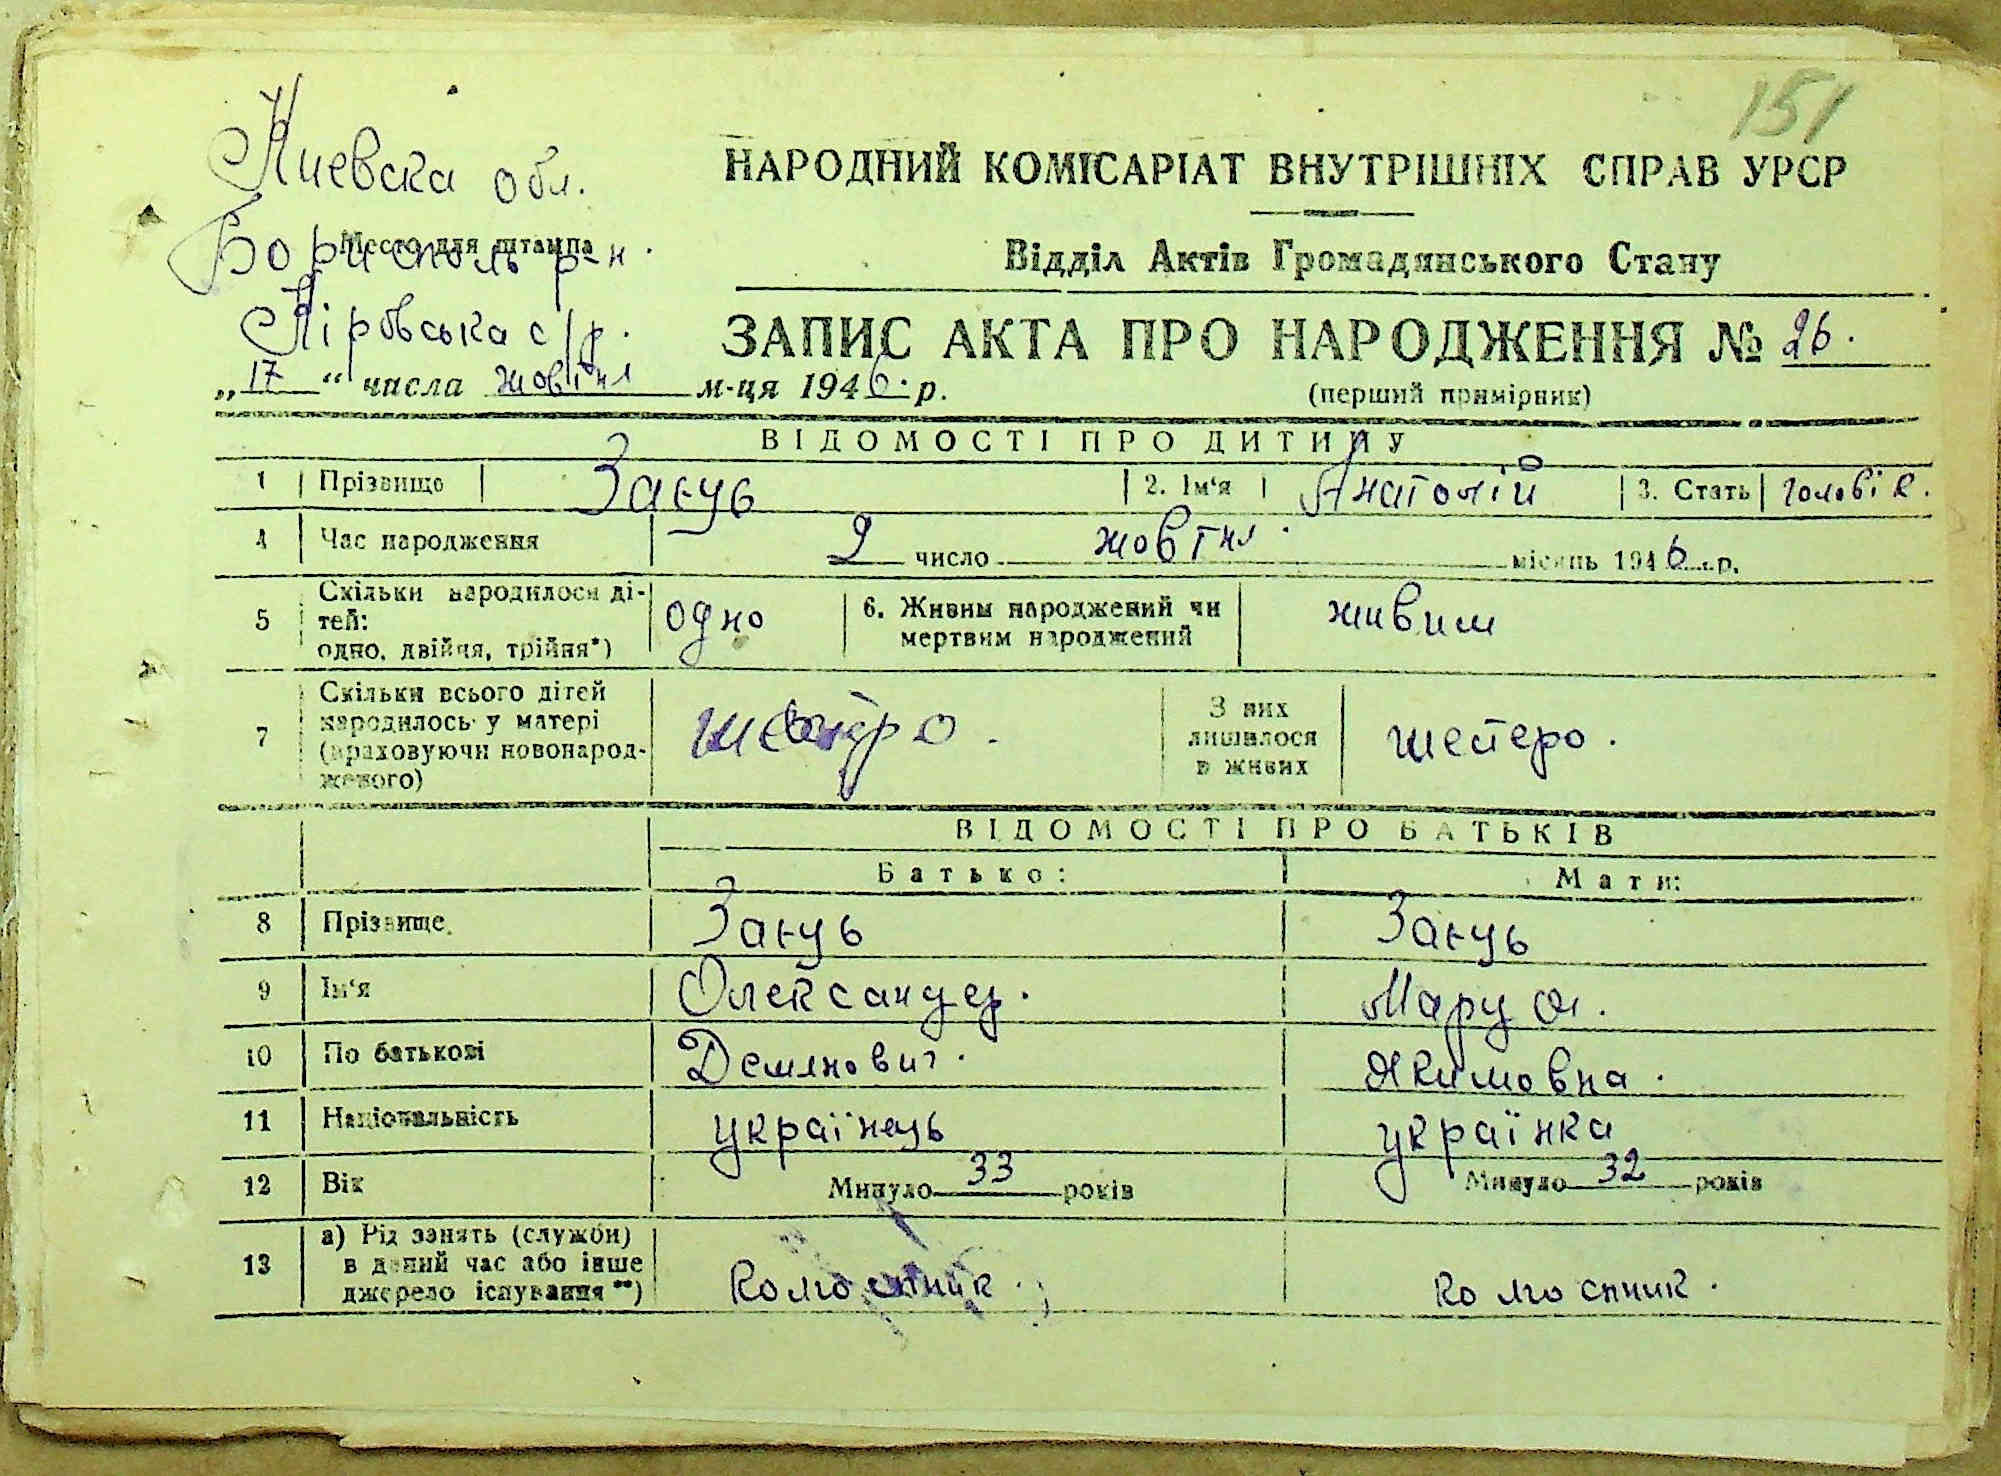 151
Киевска обл.
Бориспольр-н.
Место для штампа
Кіровська с/р.
НАРОДНИЙ КОМІСАРІАТ ВНУТРІШНІХ СПРАВ УРСР
Відділ Актів Громадянського Стану
ЗАПИС АКТА ПРО НАРОДЖЕННЯ № 26.
„17“ числа жовтня м-ця 1946. р.
(перший примірник)
ВІДОМОСТІ ПРО ДИТИНУ
1 Прізвище 2. Ім'я Анатолій 3. Стать чоловік.
4 Час народження 2 число жовтня місяць 1946 р.
5 Скільки народилося ді-
тей:
одно, двійня, трійня*) одно 6. Живим народжений чи
мертвим народжений живим
7 Скільки всього дітей
народилось у матері
(враховуючи новонарод-
женого)
З них
лишилося
в живих шестеро.
ВІДОМОСТІ ПРО БАТЬКІВ
Батько: Мати:
8 Прізвище
9 Ім'я Олександер. Маруся.
10 По батькові Демянович. Якимовна.
11 Національність українець українка
12 Вік Минуло 33 років Минуло 32 років
13 а) Рід занять (служби)
в даний час або інше
джерело існування **) колгоспник. колгоспник.